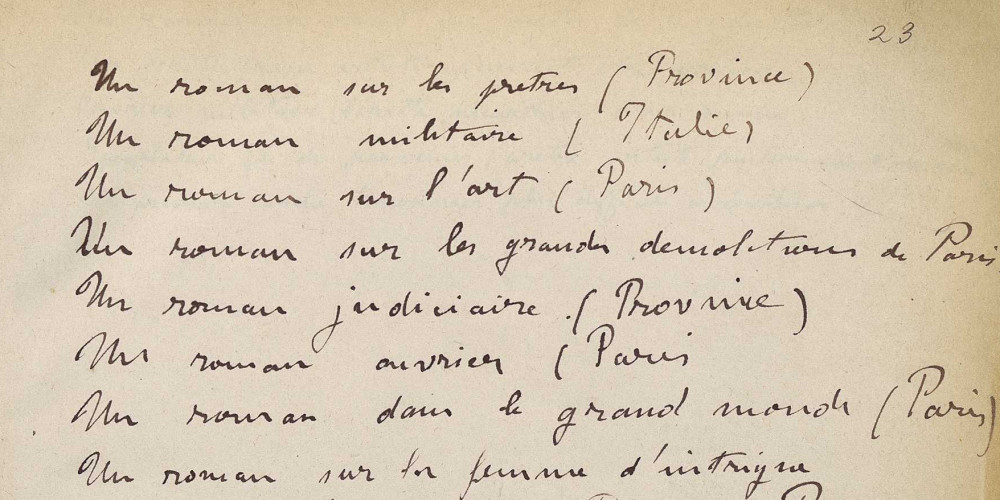 23
Un roman sur les prêtres (Province)
Un roman militaire (Italie)
Un roman sur l'art (Paris)
Un roman sur les grandes demolitions de Paris
Un roman judiciaire. (Province)
Un roman ouvrier (Paris
Un roman dans le grand monde (Paris)
Un roman sur la femme d'intrigue